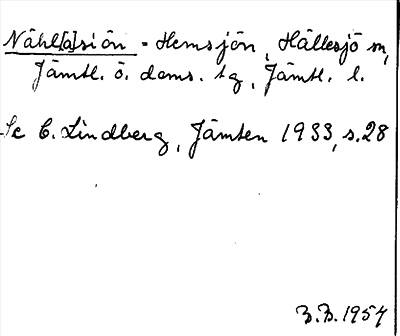 Nåhl[a]siön = Hemsjön, Hällesjö sn,
Jämtl. ö. doms. tg, Jämtl. l.
Se C. Lindberg, Jämten 1933, s. 28
B.B. 1954